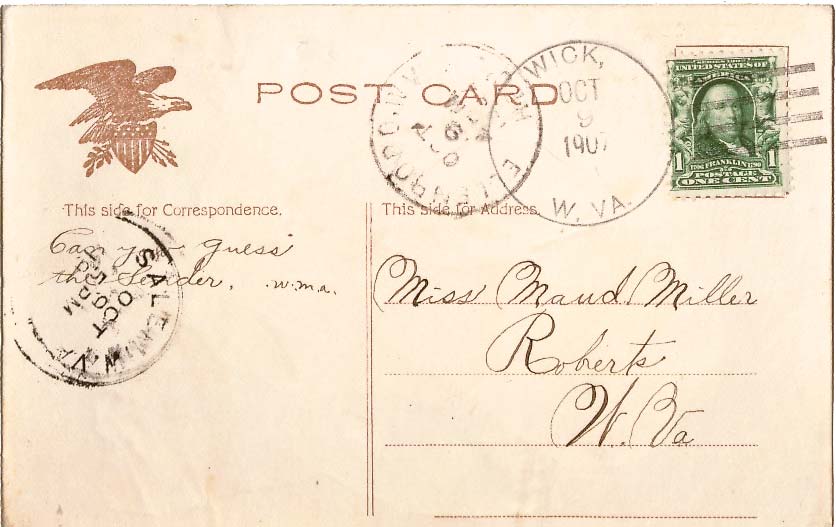 POST CARD
WICK,
OCT
9
1907
W. VA.
SERIES 1902
UNITED STATES OF
AMERICA
1 1
FRANKLIN
POSTAGE
ONE CENT
This side for Correspondence.
This side for Address.
Can you guess
the Sender, w.m.a.
SALEM W. VA
OCT
Miss Maud Miller
Roberts
W. Va